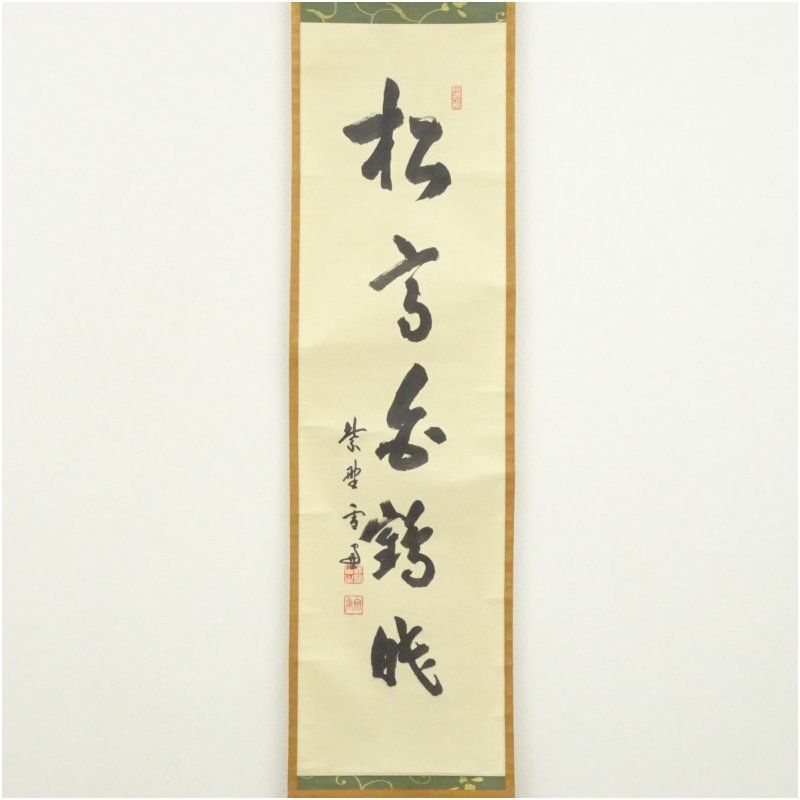 松高白鶴眠
紫野雪